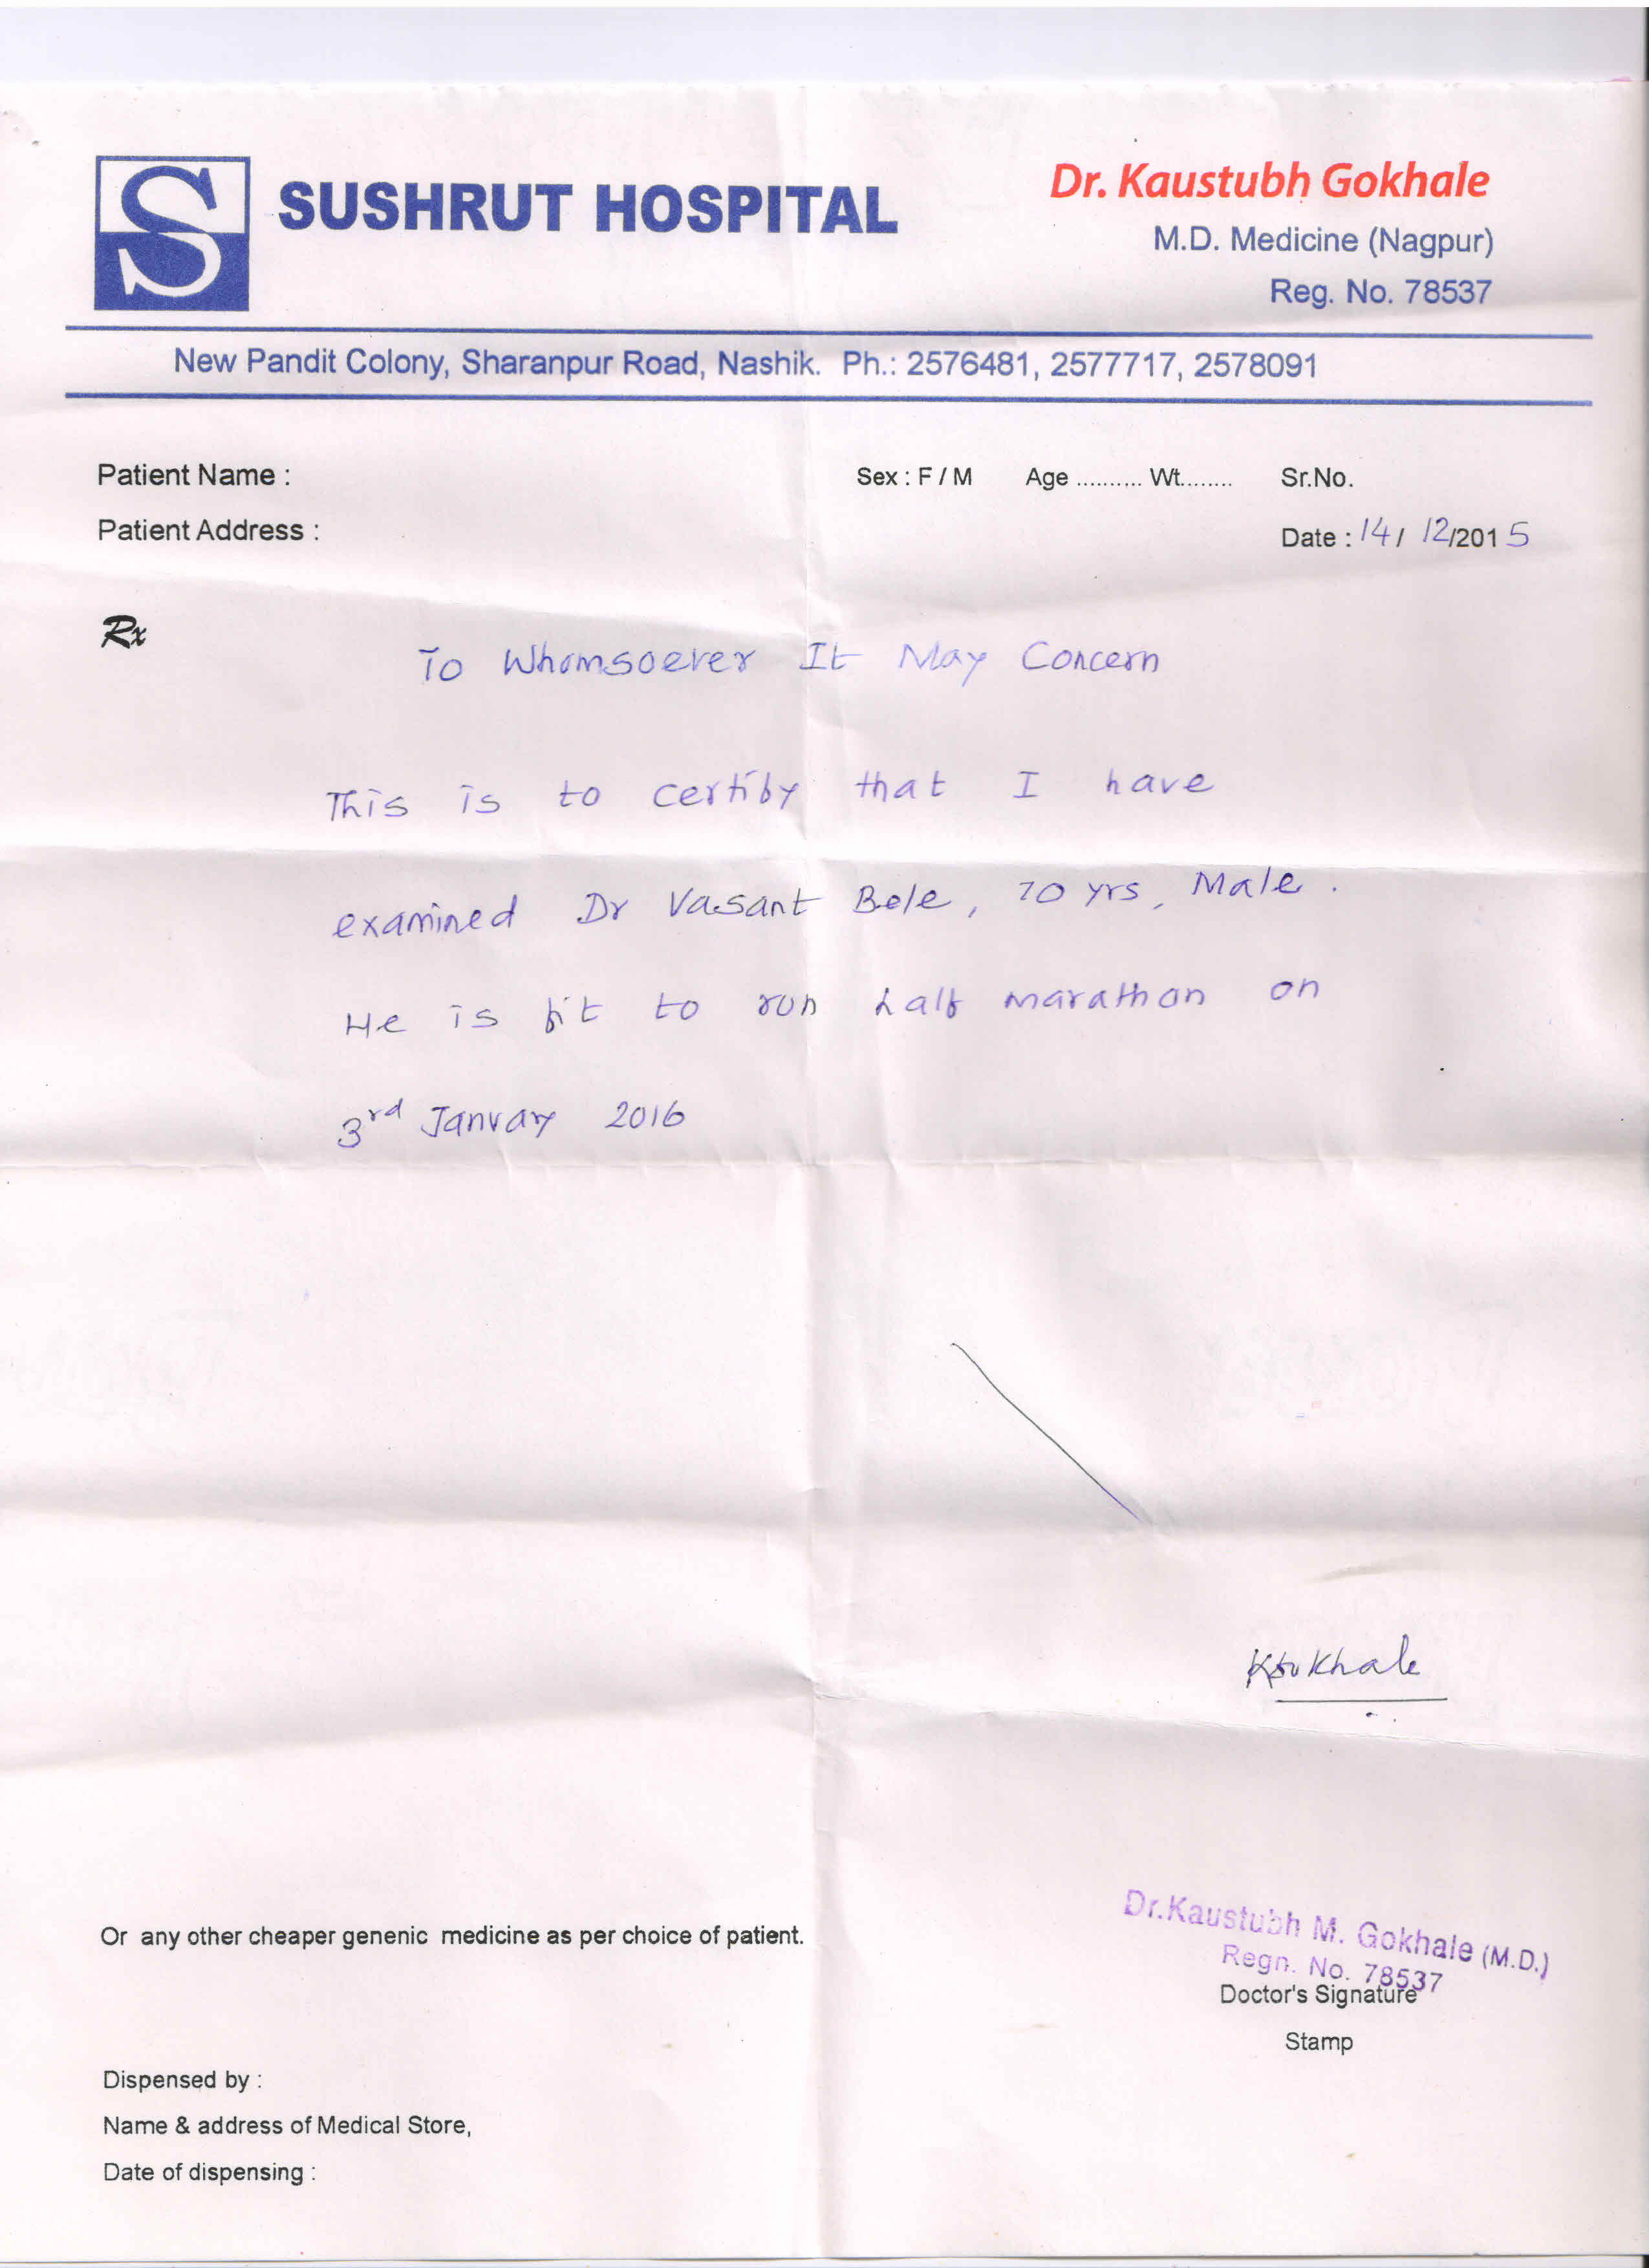 S
SUSHRUT HOSPITAL
Dr. Kaustubh Gokhale
M.D. Medicine (Nagpur)
Reg. No. 78537
New Pandit Colony, Sharanpur Road, Nashik. Ph.: 2576481, 2577717, 2578091
Patient Name : Sex : F / M Age .......... Wt........ Sr.No.
Patient Address : Date : 14/ 12/2015
Rx
To Whomsoever It May Concern
This is to certify that I have
examined Dr Vasant Bele, 70 yrs, Male.
He is fit to run half marathon on
3rd January 2016
KGokhale
Or any other cheaper genenic medicine as per choice of patient.
Dr.Kaustubh M. Gokhale (M.D.)
Regn. No. 78537
Doctor's Signature
Stamp
Dispensed by :
Name & address of Medical Store,
Date of dispensing :